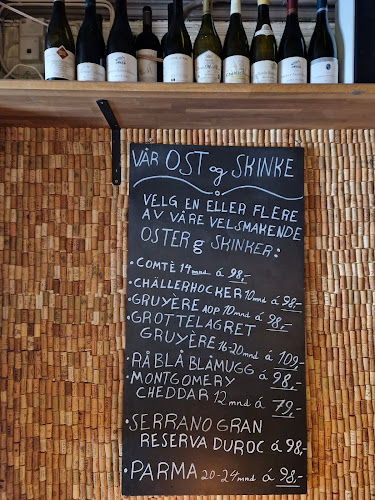 VÅR OST og SKINKE
VELG EN ELLER FLERE
AV VÅRE VELSMAKENDE
OSTER g SKINKER:
• COMTÈ 14 mnd á 98,-
• CHÄLLERHOCKER 10 mnd á 98,-
• GRUYÈRE AOP 10 mnd á 98,-
• GROTTELAGRET
GRUYÈRE 16-20 mnd á 109,-
• RÅBLÅ BLÅMUGG á 98,-
• MONTGOMERY
CHEDDAR 12 mnd á 79,-
• SERRANO GRAN
RESERVA DUROC á 98,-
• PARMA 20-24 mnd á 98,-